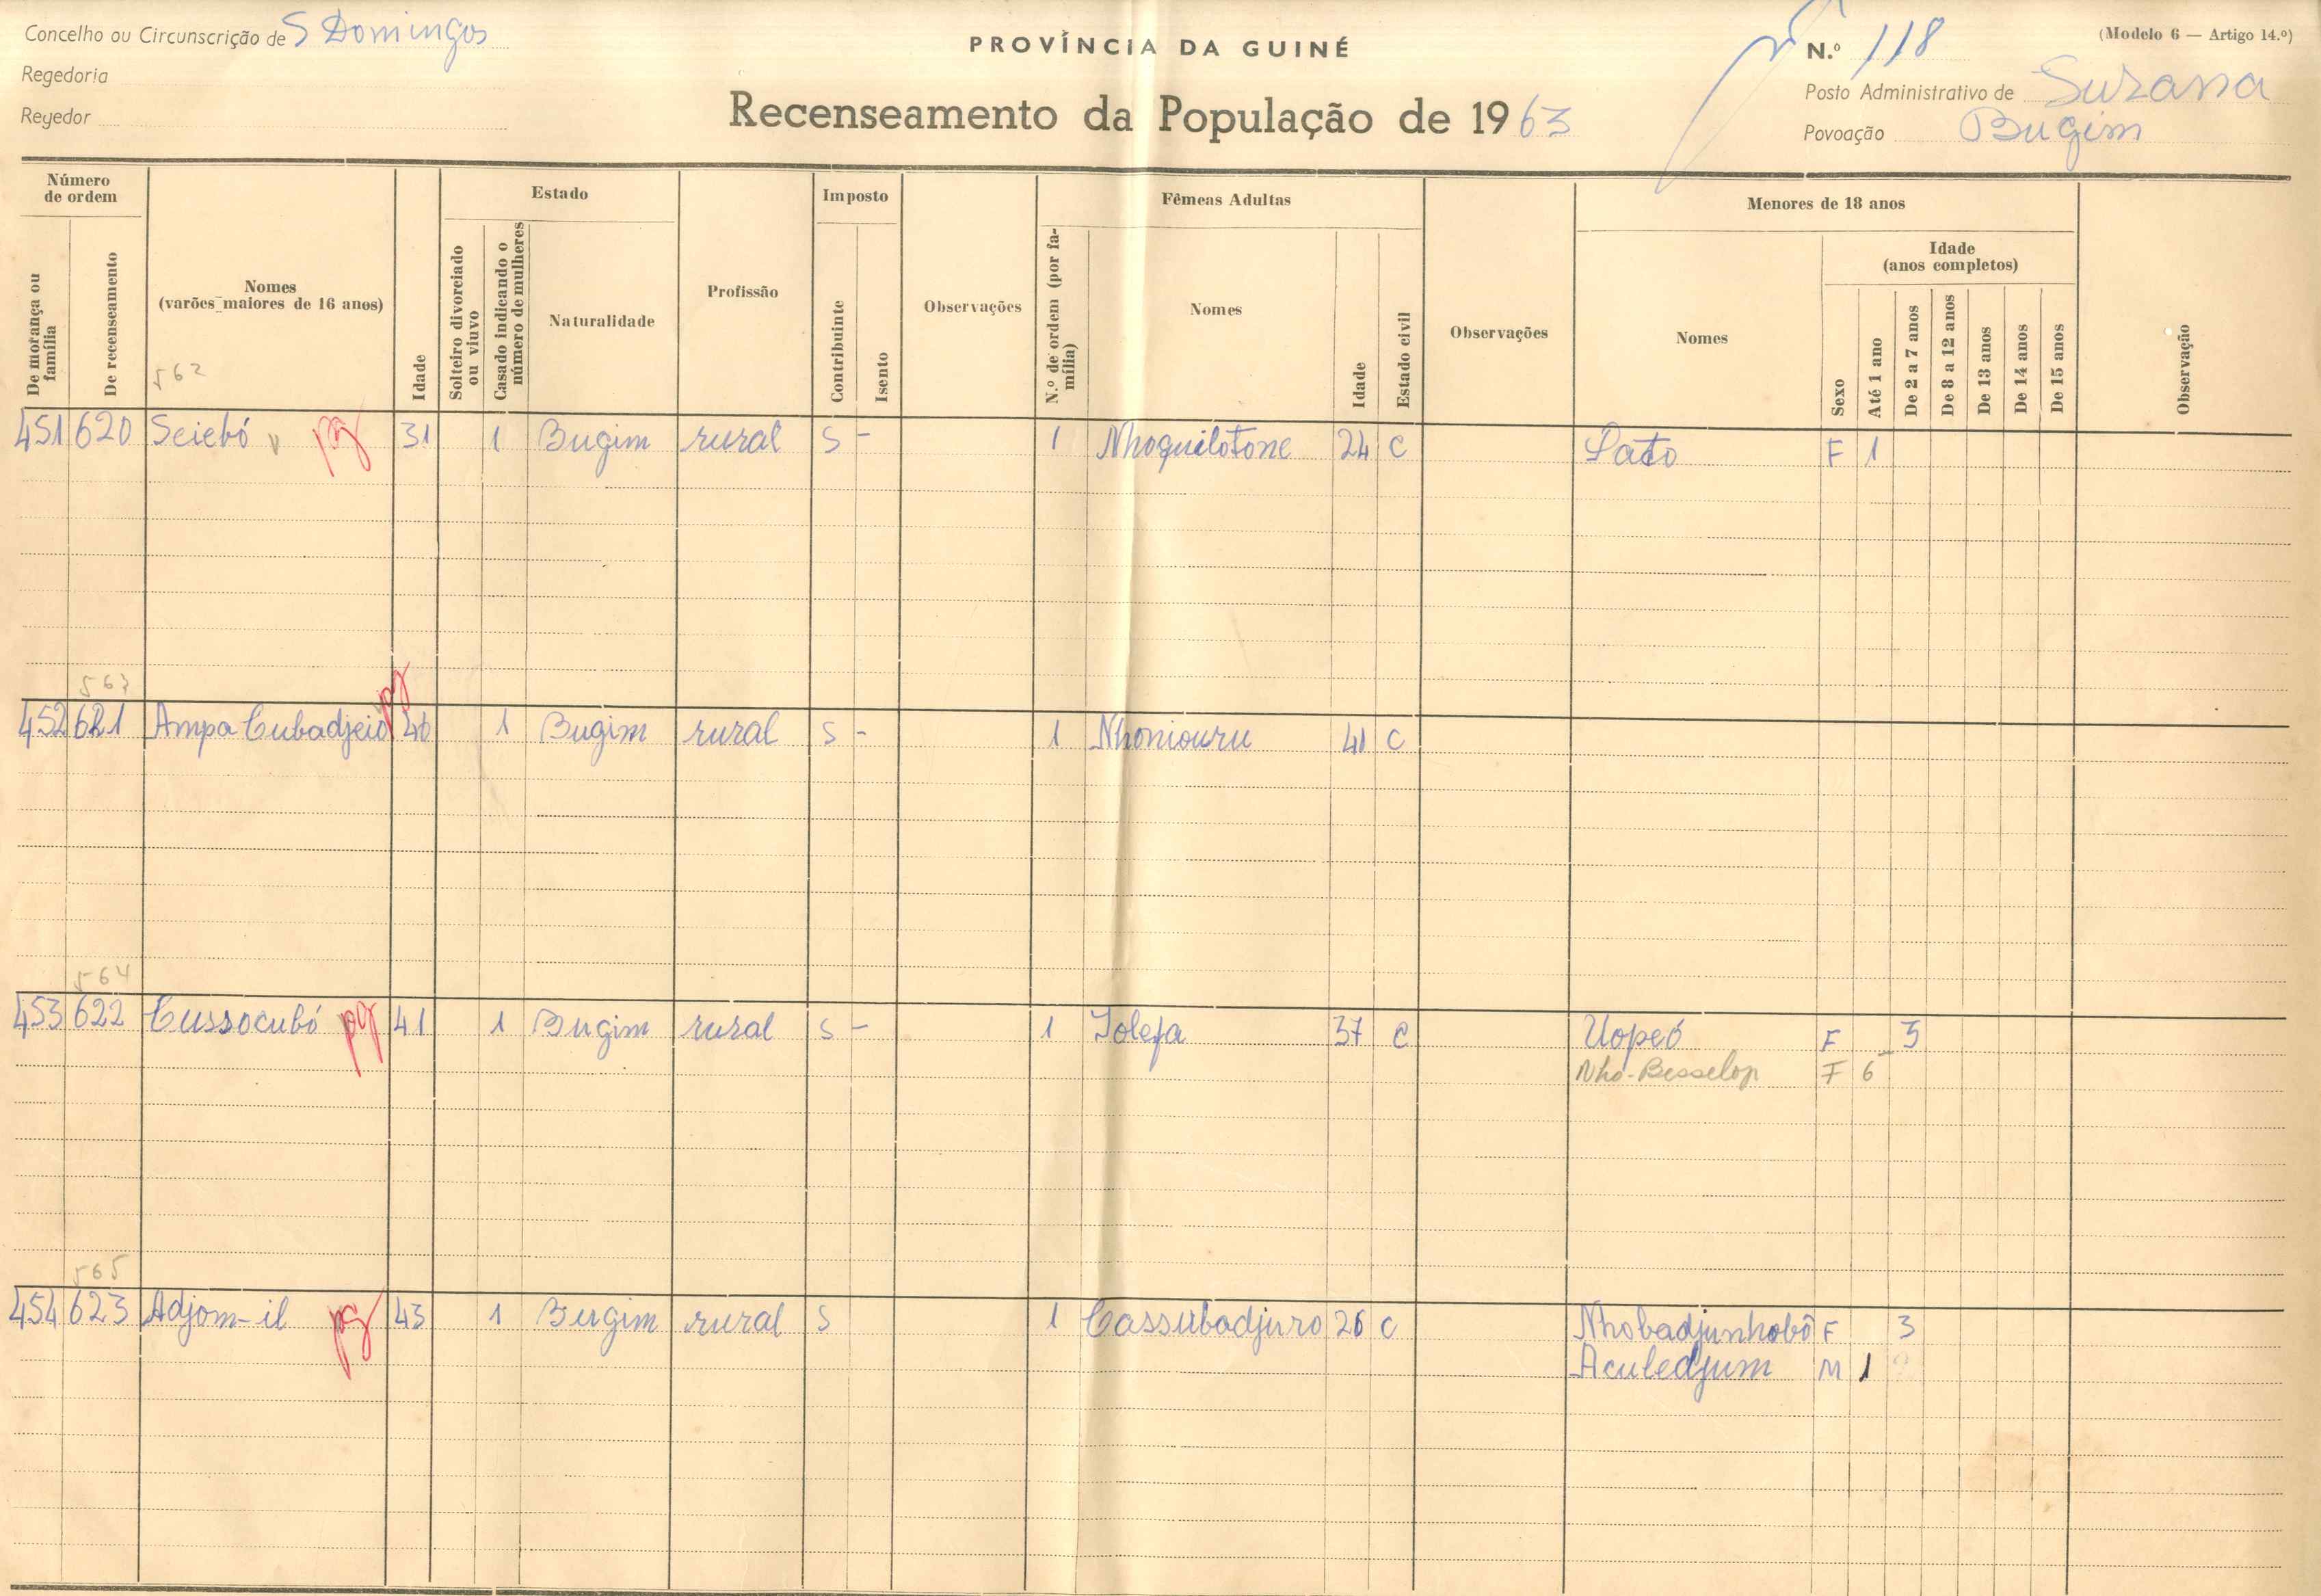 Concelho ou Circunscrição de S Domingos
PROVÍNCIA DA GUINÉ
N.º 118
(Modelo 6 — Artigo 14.º)
Regedoria
Posto Administrativo de Suzana
Regedor
Recenseamento da População de 1963
Povoação Bugim
Número de ordem
De morança ou família
De recenseamento
Nomes
(varões maiores de 16 anos)
Idade
Estado
Solteiro divorciado ou viuvo
Casado indicando o número de mulheres
Naturalidade
Profissão
Imposto
Contribuinte
Isento
Observações
Fêmeas Adultas
N.º de ordem (por família)
Nomes
Idade
Estado civil
Observações
Menores de 18 anos
Nomes
Sexo
Idade
(anos completos)
Até 1 ano
De 2 a 7 anos
De 8 a 12 anos
De 13 anos
De 14 anos
De 15 anos
Observação
562
451 620 Seiebó pg 31 1 Bugim rural S - 1 Nhoquilotone 24 C Lato F 1
563
452 621 Ampa Cubadjeió pg 40 1 Bugim rural S - 1 Nhoniouru 41 C
564
453 622 Cussocubó pg 41 1 Bugim rural S - 1 Jolefa 37 C Uopeó F 5
Nho-Besselop F 6
565
454 623 Adjom-il pg 43 1 Bugim rural S 1 Cassubadjuro 26 C Nhobadjunhobó F 3
Aculedjum M 1